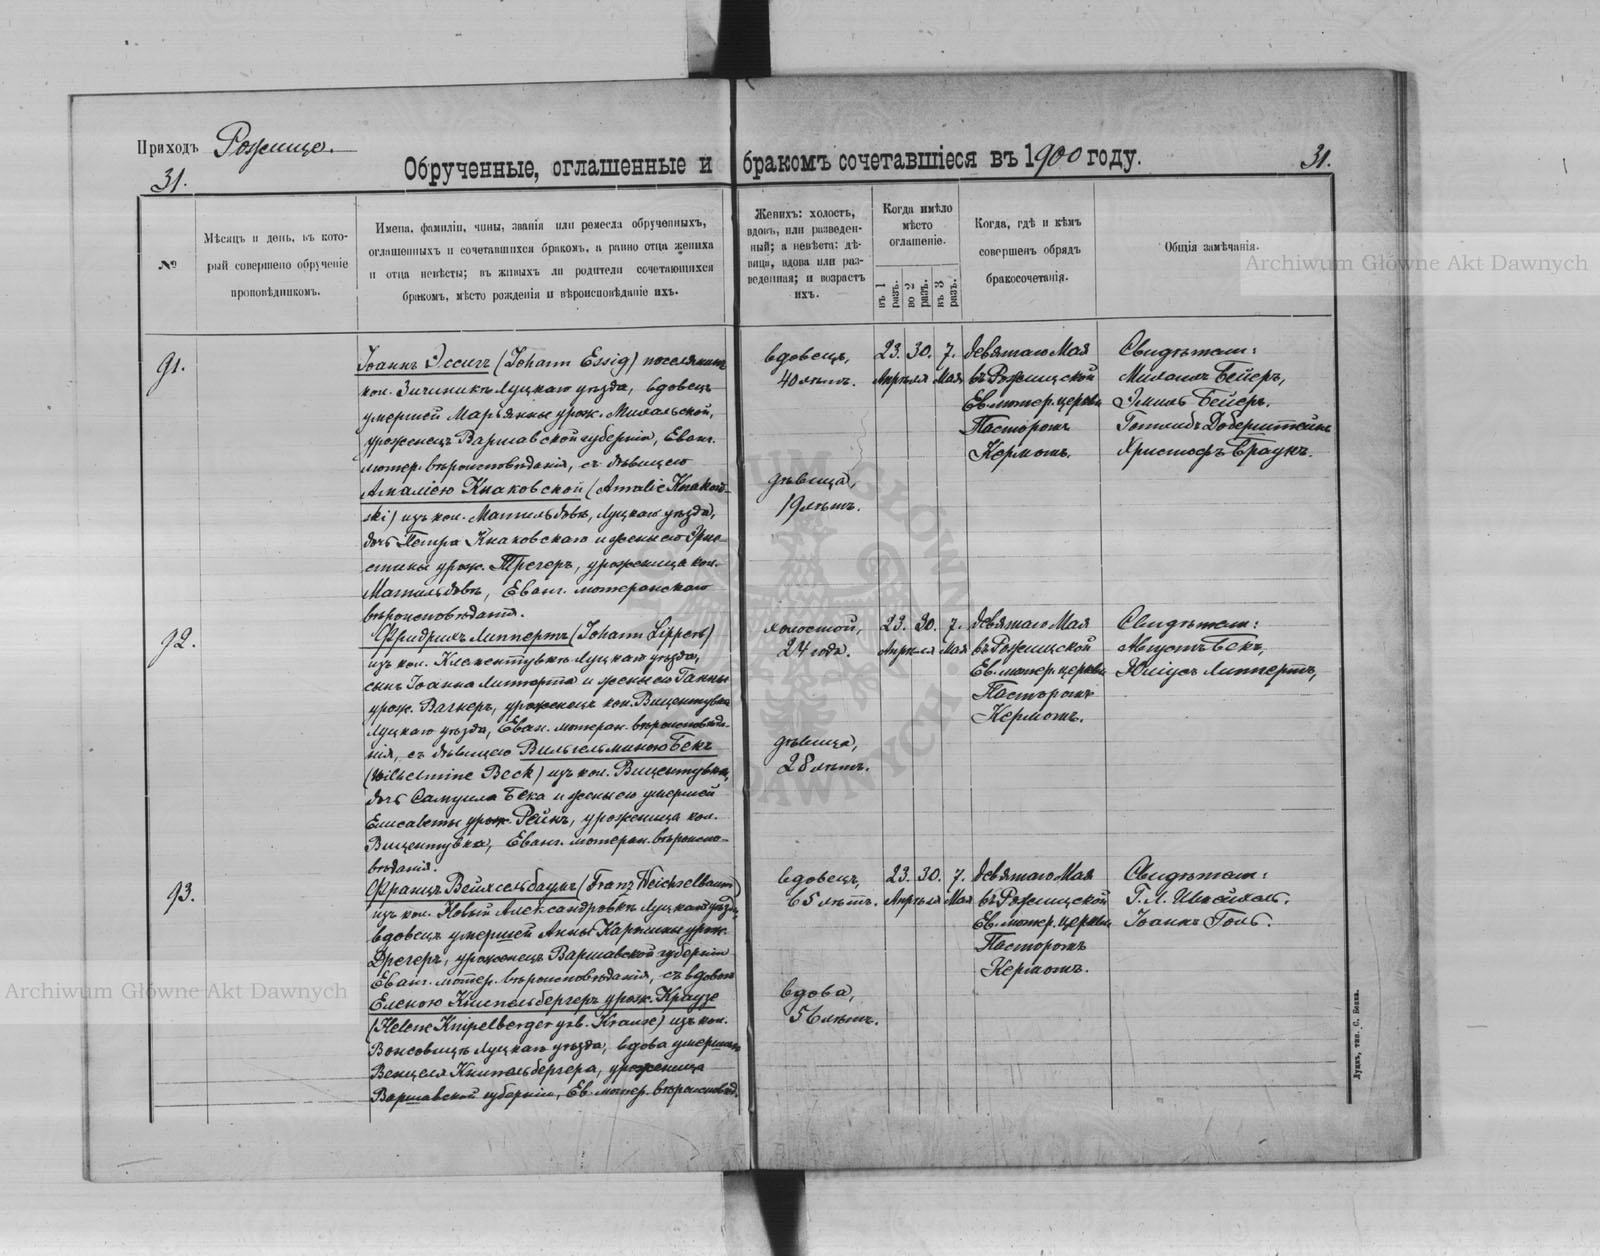 Приходъ Рожище.
31.
Обрученные, оглашенные и бракомъ сочетавшіеся въ 1900 году.
31.
№
Мѣсяцъ и день, въ кото-
рый совершено обрученіе
проповѣдникомъ.
Имена, фамиліи, чины, званія или ремесла обрученныхъ,
оглашенныхъ и сочетавшихся бракомъ, а равно отца жениха
и отца невѣсты; въ живыхъ ли родители сочетающихся
бракомъ, мѣсто рожденія и вѣроисповѣданіе ихъ.
Женихъ: холостъ,
вдовъ, или разведен-
ный; а невѣста: дѣ-
вица, вдова или раз-
веденная; и возрастъ
ихъ.
Когда имѣло
мѣсто
оглашеніе.
въ 1 разъ.
во 2 разъ.
въ 3 разъ.
Когда, гдѣ и кѣмъ
совершенъ обрядъ
бракосочетанія.
Общія замѣчанія.
Archiwum Główne Akt Dawnych
91.
Іоаннъ Эссигъ (Johann Essig) поселянинъ
кол. Луцкаго уѣзда, вдовецъ
умершей Марьянны урож.
уроженецъ Варшавской губерніи, Еванг.
лютер. вѣроисповѣданія, съ дѣвицею
Амаліею Кнаковской (Amalie Knakow-
ski) изъ кол. Матильдовъ, Луцкаго уѣзда,
дочь Петра Кнаковскаго и жены его Хри-
стины урож. Трегеръ, уроженица кол.
Матильдовъ, Еванг. лютеранскаго
вѣроисповѣданія.
вдовецъ,
40 лѣтъ.
дѣвица,
19 лѣтъ.
23. 30. 7.
Апрѣля Мая
девятаго Мая
въ Рожищской
Ев. лютер. церкви
Пасторомъ
Кермомъ.
Свидѣтели:
Бейеръ,
Эмиль Бейеръ.
Готлибъ Доберштейнъ
Христофъ Браунъ.
92.
Фридрихъ Липпертъ (Johann Lippert)
изъ кол. Клементувка Луцкаго уѣзда,
сынъ Іоанна Липперта и жены его Ганны
урож. Вагнеръ, уроженецъ кол. Вицентувка
Луцкаго уѣзда, Еван. лютеран. вѣроисповѣда-
нія, съ дѣвицею Вильгельминою Бекъ
(Wilhelmine Beck) изъ кол. Вицентувка,
дочь Самуила Бека и жены его умершей
Елисаветы урож. Рейнъ, уроженица кол.
Вицентувка, Еванг. лютеран. вѣроиспо-
вѣданія.
холостой,
24 года.
дѣвица,
28 лѣтъ.
23. 30. 7.
Апрѣля Мая
девятаго Мая
въ Рожищской
Ев. лютер. церкви
Пасторомъ
Кермомъ.
Свидѣтели:
Августъ Бекъ,
Юліусъ Липпертъ,
93.
Францъ Вейхсельбаумъ (Franz Weichselbaum)
изъ кол. Новый Александровкъ Луцкаго уѣзда,
вдовецъ умершей Анны Каролины урож.
Дрегеръ, уроженецъ Варшавской губерніи
Еванг. лютер. вѣроисповѣданія, съ вдовою
Еленою Книпельбергеръ урож. Краузе
(Helene Knipelberger geb. Krause) изъ кол.
Луцкаго уѣзда, вдова умершаго
Венцеля Книпельбергера, уроженица
Варшавской губерніи, Ев. лютер. вѣроисповѣд.
вдовецъ,
65 лѣтъ.
вдова,
56 лѣтъ.
23. 30. 7.
Апрѣля Мая
девятаго Мая
въ Рожищской
Ев. лютер. церкви
Пасторомъ
Кермомъ.
Свидѣтели:
Іоаннъ Голь.
Archiwum Główne Akt Dawnych
Луцкъ, тип. С. Бонка.